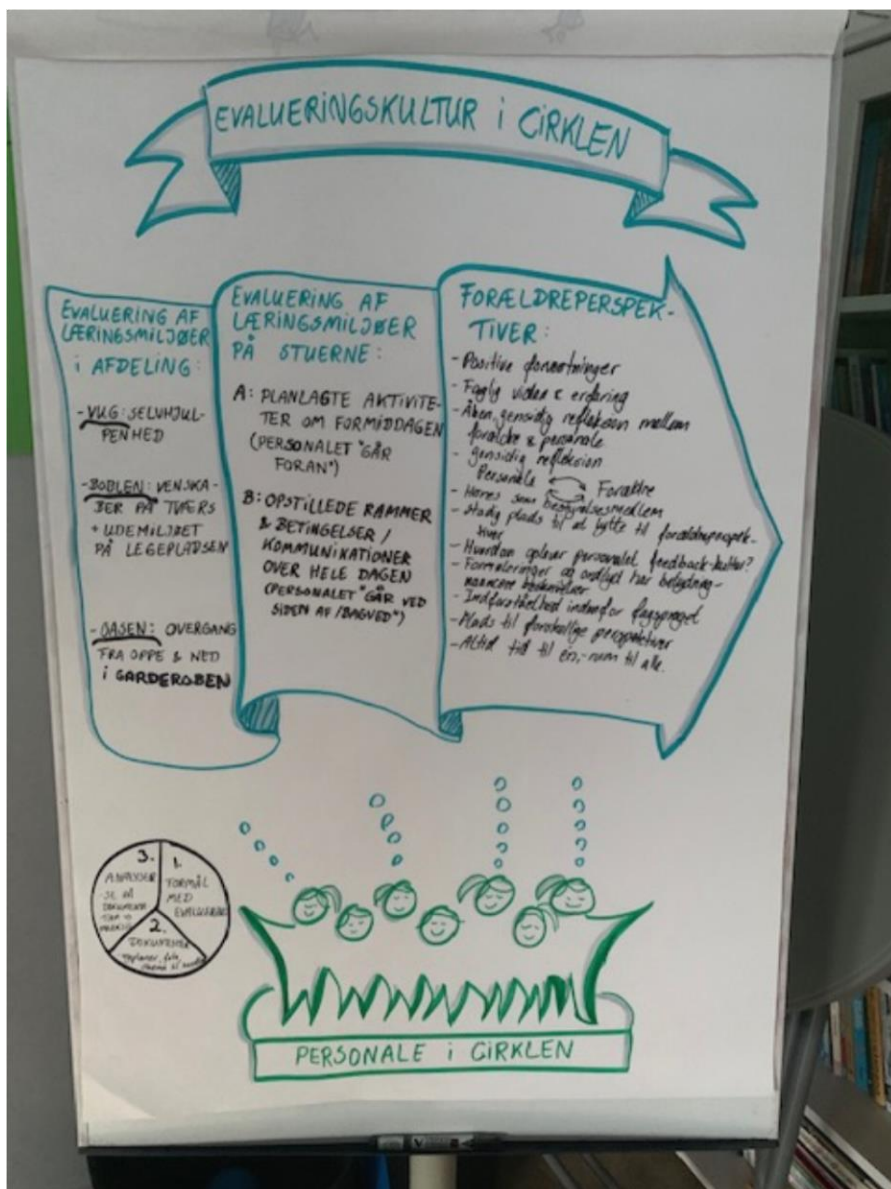 EVALUERINGSKULTUR i CIRKLEN
EVALUERING AF
LÆRINGSMILJØER
i AFDELING:
- VUG: SELVHJUL-
PENHED
- BOBLEN: VENSKA-
BER PÅ TVÆRS
+ UDEMILJØET
PÅ LEGEPLADSEN
- OASEN: OVERGANG
FRA OPPE & NED
i GARDEROBEN
EVALUERING AF
LÆRINGSMILJØER
PÅ STUERNE:
A: PLANLAGTE AKTIVITE-
TER OM FORMIDDAGEN
(PERSONALET "GÅR
FORAN")
B: OPSTILLEDE RAMMER
& BETINGELSER /
KOMMUNIKATIONER
OVER HELE DAGEN
(PERSONALET "GÅR VED
SIDEN AF / BAGVED")
FORÆLDREPERSPEK-
TIVER:
- Positive forventninger
- Faglig viden & erfaring
- Åben, gensidig refleksion mellem
forældre & personale
- gensidig refleksion
Personale Forældre
- Høres som bestyrelsesmedlem
- Stadig plads til at lytte til forældreperspek-
tiver
- Hvordan oplever personalet feedback-kultur?
- Formuleringer og ordlyd har betydning -
nuancere beskrivelser
- Indforståethed indenfor fagsproget
- Plads til forskellige perspektiver
- Altid tid til én, - rum til alle.
3.
SE PÅ
1.
FORMÅL
MED
EVALUERING
2.
PERSONALE i CIRKLEN